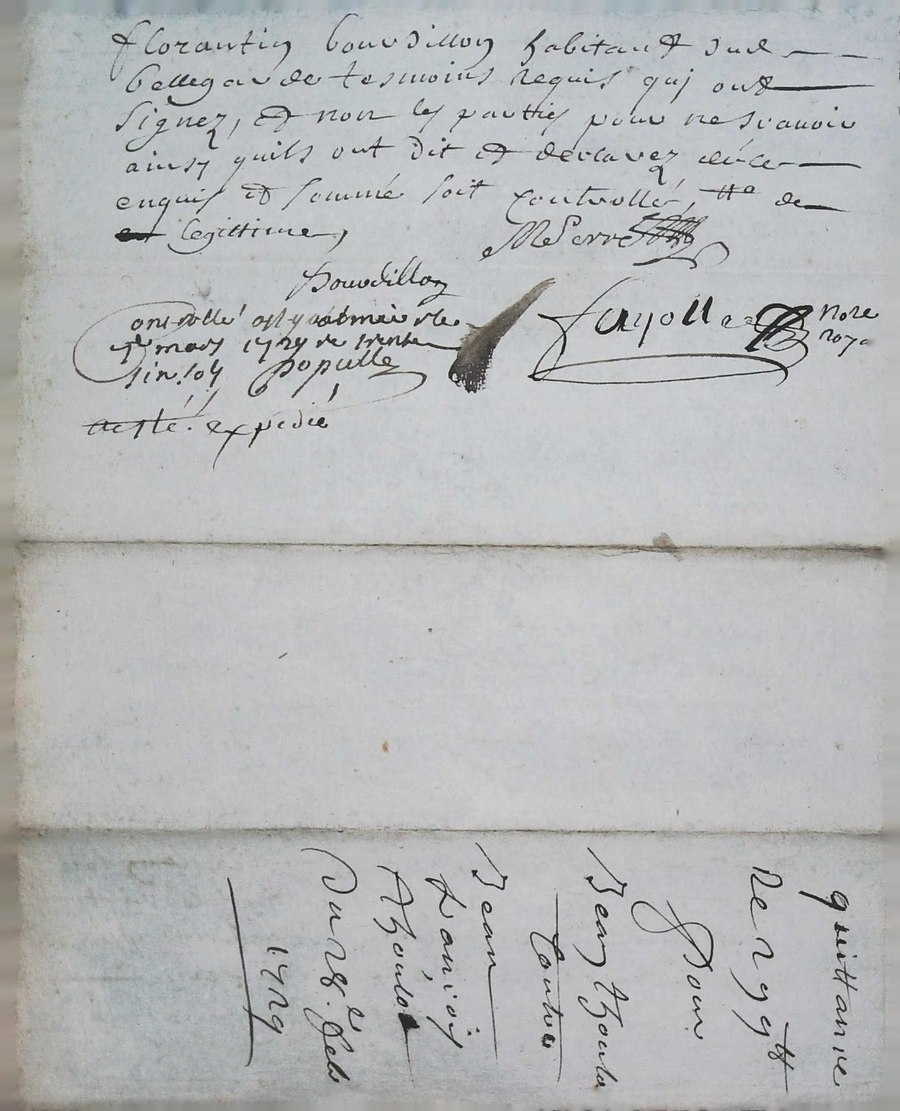 florantin bourdillon habitant dud
bellegarde tesmoins requis qui ont
signez, et non les parties pour ne scavoir
ainsy quils ont dit et declarez de ce
enquis et sommé soit controllé, de
legittime,
MePerre
Bourdillon
Controllé a st galmier le
mars 1729 r trente
sin sols Populle
Fayolle nore
roya
expedié
quittance
De
Pour
Jean thoulo
Contre
Jean
francois
thoulo
Du 28e feb
1729